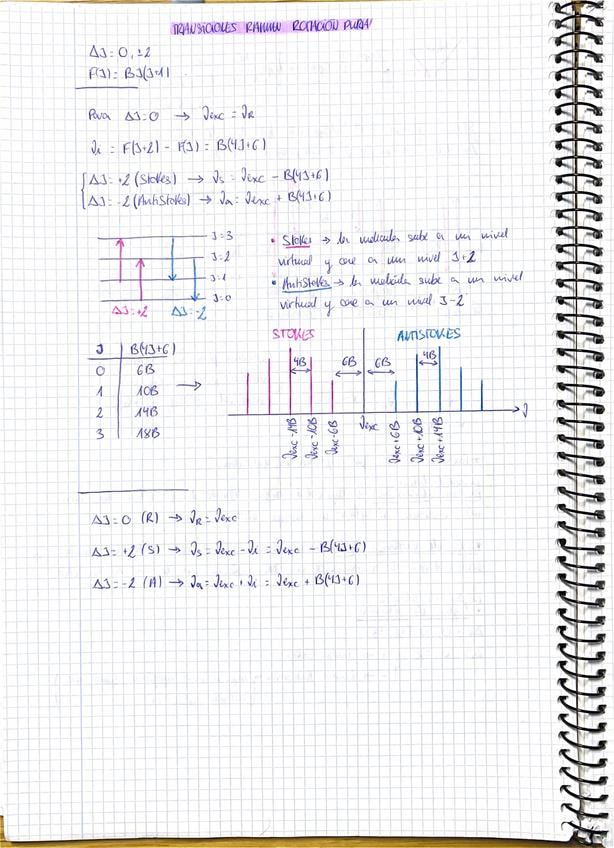 TRANSICIONES RAMAN ROTACIÓN PURA
ΔJ: 0, ±2
F(J): BJ(J+1)
Para ΔJ=0 → ν̃exc = ν̃R
ν̃i = F(J+2) - F(J) = B(4J+6)
ΔJ: +2 (Stokes) → ν̃s = ν̃exc - B(4J+6)
ΔJ: -2 (AntiStokes) → ν̃a = ν̃exc + B(4J+6)
J=3
J=2
J=1
J=0
ΔJ=+2 ΔJ=-2
• Stokes → la molécula sube a un nivel
virtual y cae a un nivel J+2
• AntiStokes → la molécula sube a un nivel
virtual y cae a un nivel J-2
J B(4J+6)
0 6B
1 10B
2 14B
3 18B
→
STOKES ANTISTOKES
4B 6B 6B 4B
ν̃exc-14B ν̃exc-10B ν̃exc-6B ν̃exc ν̃exc+6B ν̃exc+10B ν̃exc+14B ν̃
ΔJ=0 (R) → ν̃R = ν̃exc
ΔJ=+2 (S) → ν̃s = ν̃exc - ν̃i = ν̃exc - B(4J+6)
ΔJ=-2 (A) → ν̃a = ν̃exc + ν̃i = ν̃exc + B(4J+6)